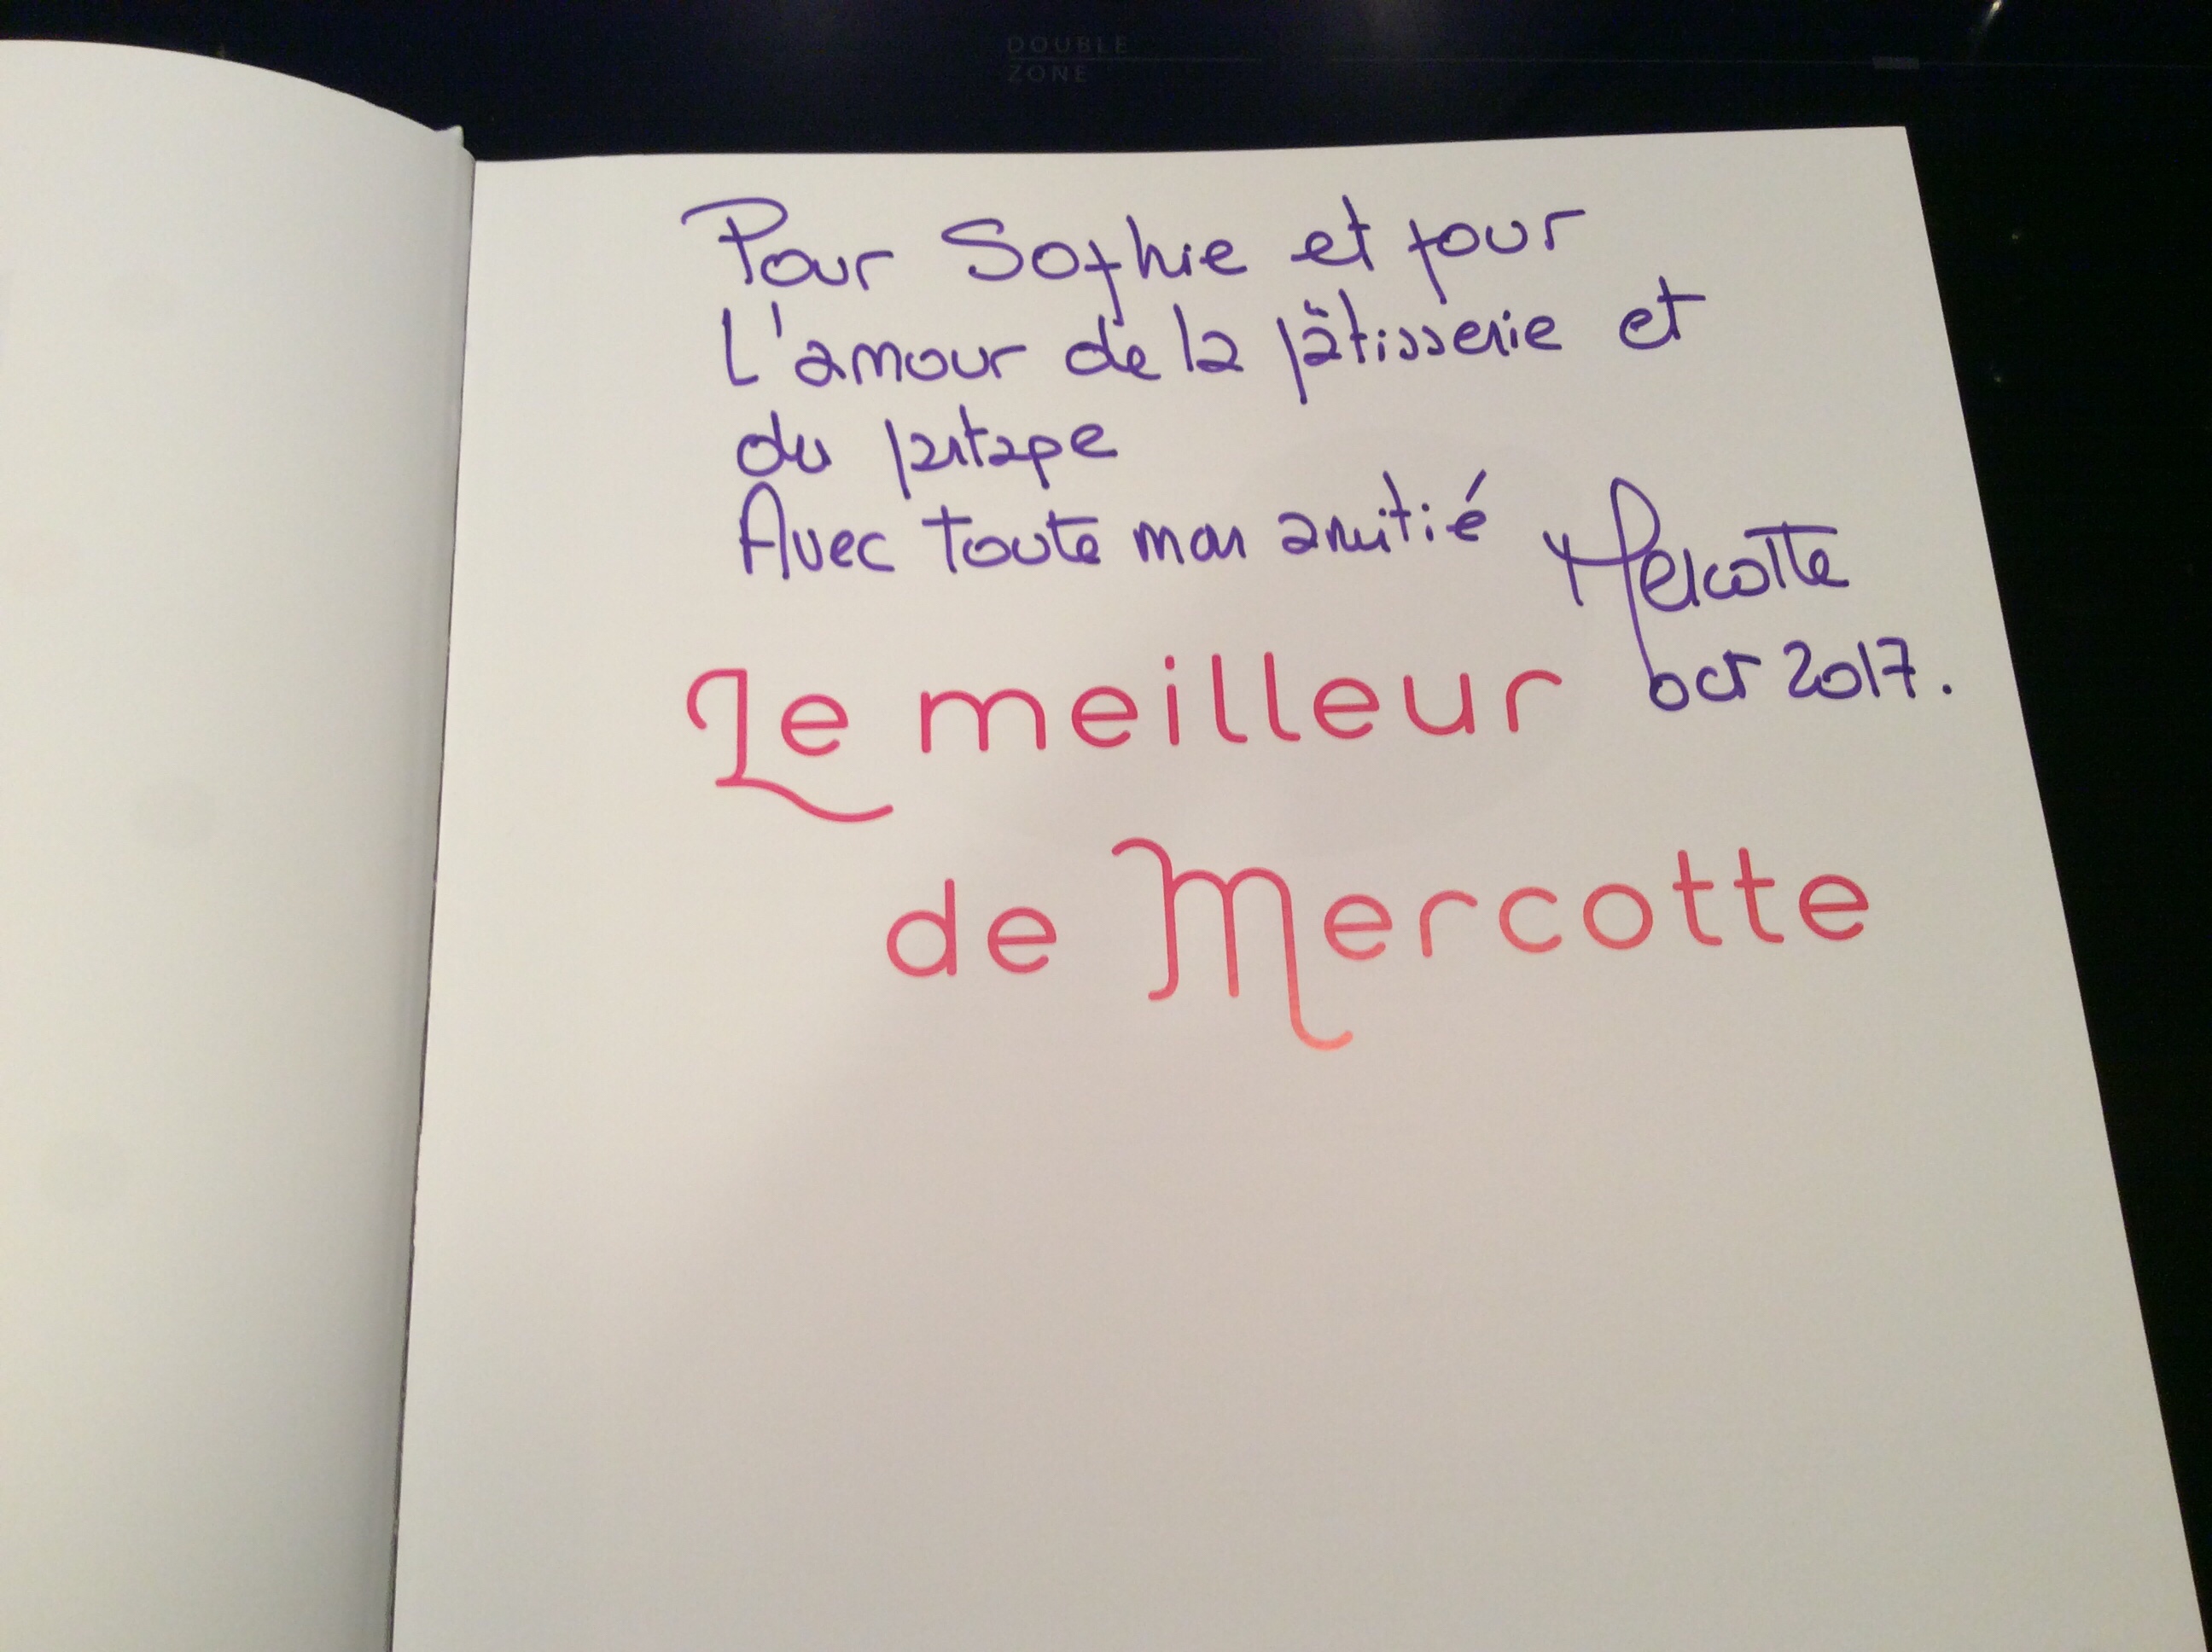 DOUBLE
ZONE
Pour Sophie et pour
L'amour de la pâtisserie et
du partage
Avec toute mon amitié Mercotte
oct 2017.
Le meilleur
de Mercotte